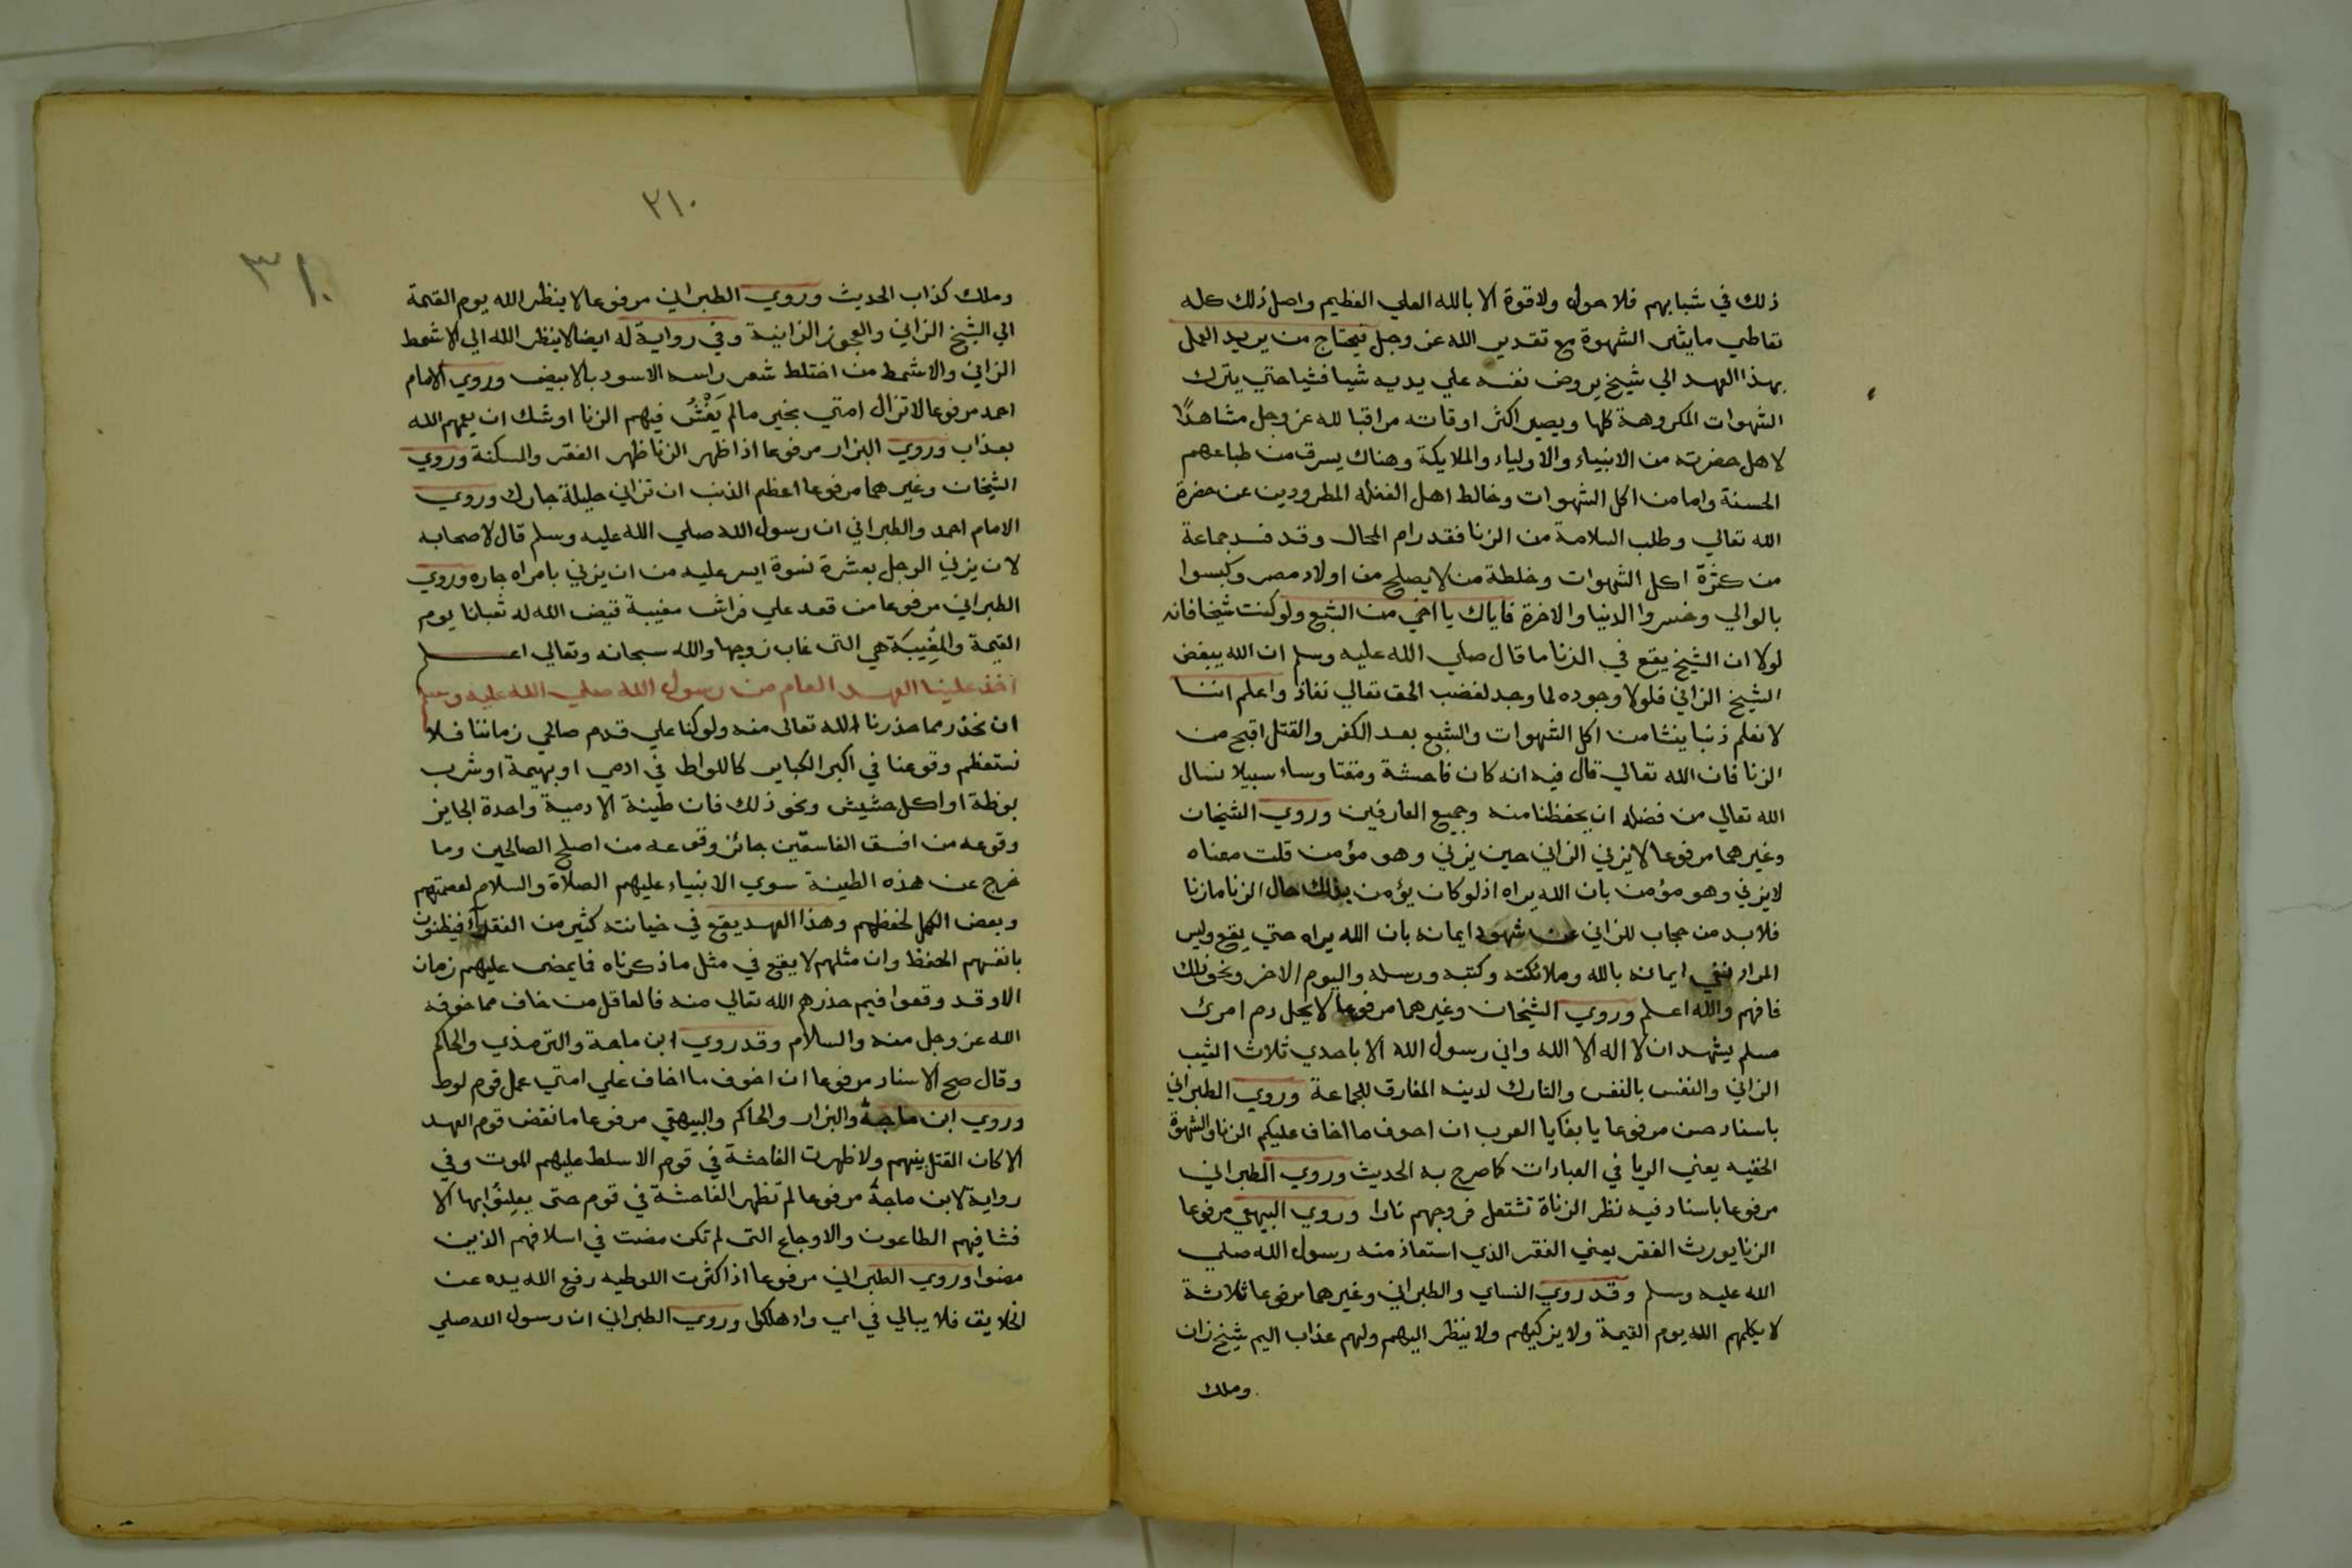 ذلك في شبابهم فلا حول ولا قوة الا بالله العلي العظيم واصل ذلك كله
تعاطي ما يثير الشهوة مع تقدير الله عز وجل فيحتاج من يريد العمل
بهذا العهد الي شيخ يروض نفسه علي يديه شيا فشيا حتي يترك
الشهوات المكروهة كلها ويصير اكثر اوقاته مراقبا لله عز وجل مشاهدًا
لاهل حضرته من الانبياء والاولياء والملايكة وهناك يسرق من طباعهم
الحسنة واما من اكل الشهوات وخالط اهل الغفلة المطرودين عن حضرة
الله تعالي وطلب السلامة من الزنا فقد رام المحال وقد فسد جماعة
من كثرة اكل الشهوات وخلطة من لا يصلح من اولاد مصر وكبسوا
بالوالي وخسروا الدنيا والاخرة فاياك يا اخي من الشبع ولو كنت شيخا فانه
لولا ان الشيخ يقع في الزنا ما قال صلي الله عليه وسلم ان الله يبغض
الشيخ الزاني فلولا وجوده لما وجد لغضب الحق تعالي نفاذ واعلم اننا
لا نعلم ذنبا ينشا من اكل الشهوات والشبع بعد الكفر والقتل اقبح من
الزنا فان الله تعالي قال فيه انه كان فاحشة ومقتا وساء سبيلا نسال
الله تعالي من فضله ان يحفظنا منه وجميع العارفين وروي الشيخان
وغيرهما مرفوعا لا يزني الزاني حين يزني وهو مؤمن قلت معناه
لا يزني وهو مؤمن بان الله يراه اذ لو كان يؤمن بذلك حال الزنا ما زنا
فلا بد من حجاب للزاني عن شهود ايمانه بان الله يراه حتي يقع وليس
المراد نفي ايمانه بالله وملائكته وكتبه ورسله واليوم الاخر ونحو ذلك
فافهم والله اعلم وروي الشيخان وغيرهما مرفوعا لا يحل دم امرئ
مسلم يشهد ان لا اله الا الله واني رسول الله الا باحدي ثلاث الثيب
الزاني والنفس بالنفس والتارك لدينه المفارق للجماعة وروي الطبراني
باسناد حسن مرفوعا يا بغايا العرب ان اخوف ما اخاف عليكم الزنا والشهوة
الخفيه يعني الريا في العبادات كما صرح به الحديث وروي الطبراني
مرفوعا باسناد فيه نظر الزناة تشتعل فروجهم نارا وروي البيهقي مرفوعا
الزنا يورث الفقر يعني الفقر الذي استعاذ منه رسول الله صلي
الله عليه وسلم وقد روي النساي والطبراني وغيرهما مرفوعا ثلاثة
لا يكلمهم الله يوم القيمة ولا يزكيهم ولا ينظر اليهم ولهم عذاب اليم شيخ زان
وملك
٢١٠
٣١٠
وملك كذاب الحديث وروي الطبراني مرفوعا لا ينظر الله يوم القيمة
الي الشيخ الزاني والعجوز الزانية وفي رواية له ايضا لا ينظر الله الي الاشمط
الزاني والاشمط من اختلط شعر راسه الاسود بالابيض وروي الامام
احمد مرفوعا لا تزال امتي بخير ما لم يَفْشُ فيهم الزنا اوشك ان يعمهم الله
بعذاب وروي البزار مرفوعا اذا ظهر الزنا ظهر الفقر والمسكنة وروي
الشيخان وغيرهما مرفوعا اعظم الذنب ان تزاني حليلة جارك وروي
الامام احمد والطبراني ان رسول الله صلي الله عليه وسلم قال لاصحابه
لان يزني الرجل بعشرة نسوة ايسر عليه من ان يزني بامراه جاره وروي
الطبراني مرفوعا من قعد علي فراش مغيبة قيض الله له ثعبانا يوم
القيمة والمُغِيبَة هي التى غاب زوجها والله سبحانه وتعالي اعلم
اخذ علينا العهد العام من رسول الله صلي الله عليه وسلم
ان نحذر مما حذرنا الله تعالى منه ولو كنا علي قدم صالحي زماننا فلا
نستعظم وقوعنا في اكبر الكباير كاللواط في ادمي او بهيمة او شرب
بوظة او اكل حشيش ونحو ذلك فان طينة الادمية واحدة الجايز
وقوعه من افسق الفاسقين جائز وقوعه من اصلح الصالحين وما
خرج عن هذه الطينة سوي الانبياء عليهم الصلاة والسلام لعصمتهم
وبعض الكمل لحفظهم وهذا العهد يقع في خيانته كثير من الفقراء فيظنون
بانفسهم الحفظ وان مثلهم لا يقع في مثل ما ذكرناه فما يمضى عليهم زمان
الا وقد وقعوا فيم حذرهم الله تعالي منه فالعاقل من خاف مما خوفه
الله عز وجل منه والسلام وقد روي ابن ماجة والترمذي والحاكم
وقال صح الاسناد مرفوعا ان اخوف ما اخاف علي امتي عمل قوم لوط
وروي ابن ماجة والبزار والحاكم والبيهقي مرفوعا ما نقض قوم العهد
الا كان القتل بينهم ولا ظهرت الفاحشة في قوم الا سلط عليهم الموت وفي
رواية لابن ماجة مرفوعا لم تظهر الفاحشة في قوم حتى يعلنُوا بها الا
فشا فيهم الطاعون والاوجاع التى لم تكن مضت في اسلافهم الذين
مضوا وروي الطبراني مرفوعا اذا كثرت اللوطيه رفع الله يده عن
الخلايق فلا يبالي في اي واد هلكوا وروي الطبراني ان رسول الله صلي